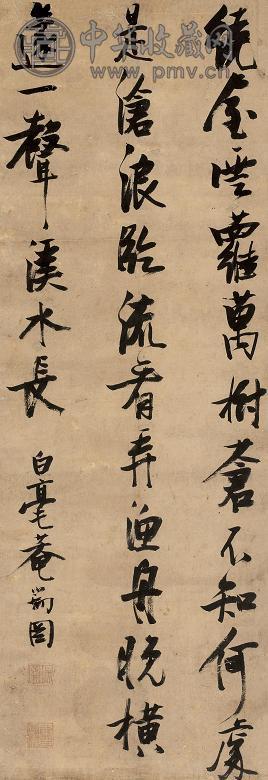 中华收藏网
www.pmv.cn
繞屋雲蘿萬樹蒼不知何處
是滄浪臨流看弄漁舟晚橫
篴一聲溪水長
白毫菴瑞圖